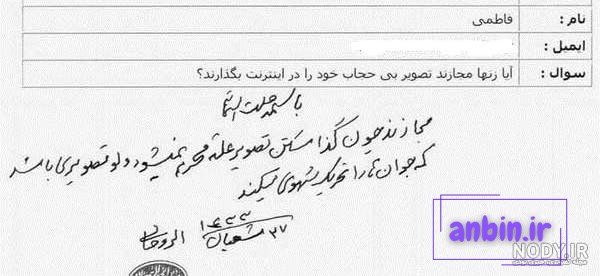 نام : فاطمی
ایمیل :
سوال : آیا زنها مجازند تصویر بی حجاب خود را در اینترنت بگذارند؟
باسمه جلت اسمائه
مجازند چون گذاشتن تصویر علت محرم نمیشود ولو تصویری باشد
که جوان ها را تحریک شهوی میکند
۲۷ شعبان ۱۴۳۳ الروحانی
anbin.ir
NODY.IR